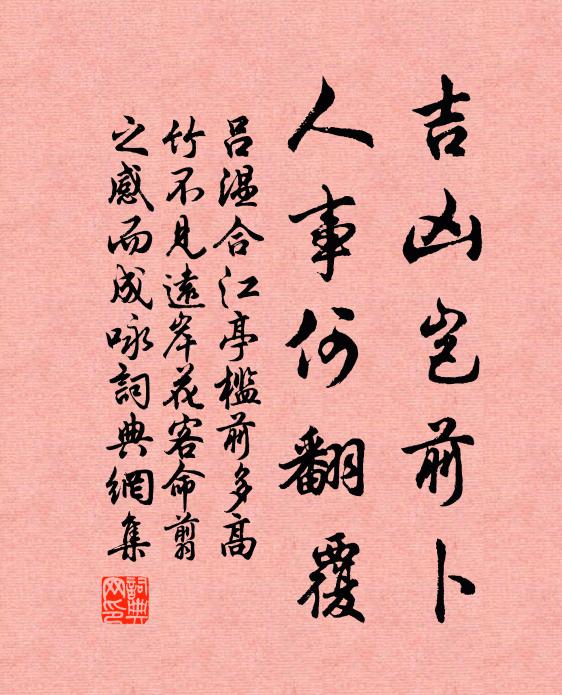 吉凶豈前卜
人事何翻覆
呂溫合江亭檻前多高
竹不見遠岸花客命剪
之感而成咏詞典網集
詞典
网印